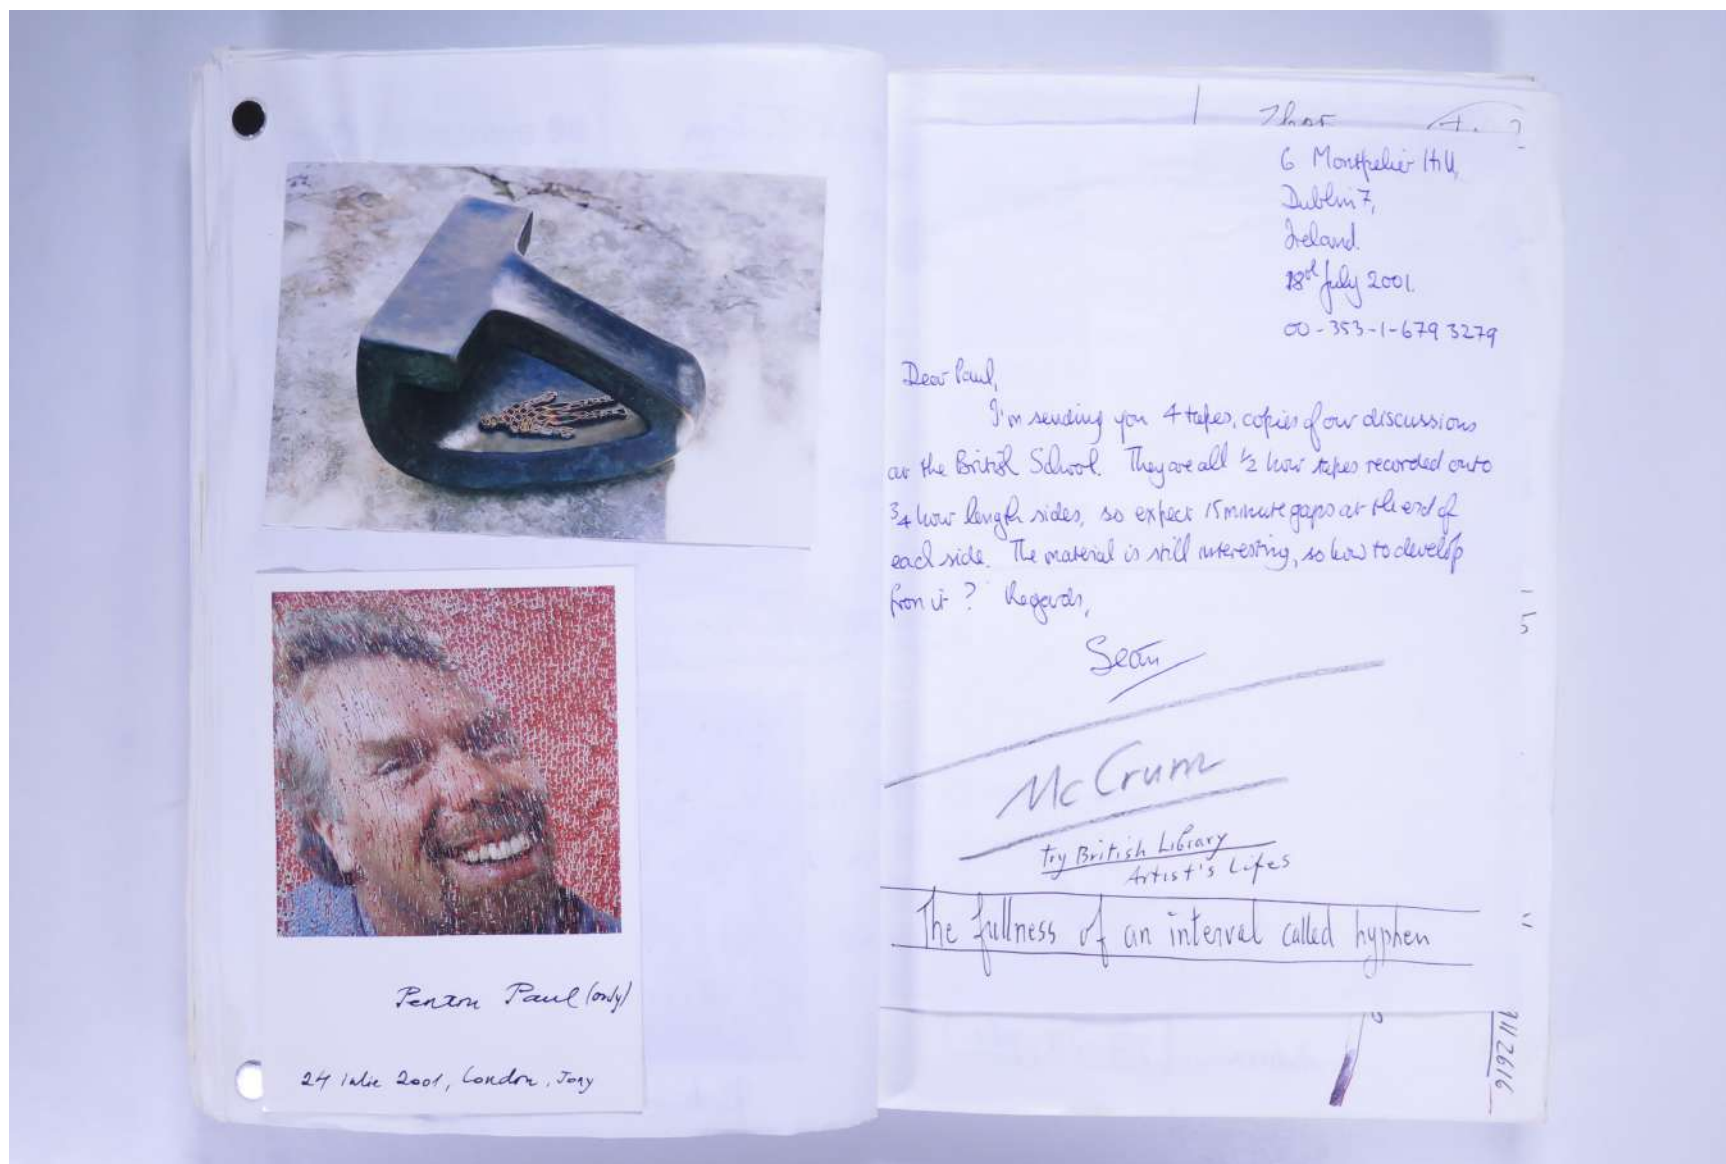 Pentru Paul (only)
24 iulie 2001, London, Jony
6 Montpelier Hill,
Dublin 7,
Ireland.
18th July 2001.
00-353-1-679 3279
Dear Paul,
I'm sending you 4 tapes, copies of our discussions
at the British School. They are all 1/2 hour tapes recorded onto
3/4 hour length sides, so expect 15 minute gaps at the end of
each side. The material is still interesting, so how to develop
from it? Regards,
Seán
McCrum
try British Library
Artist's Lifes
The fullness of an interval called hyphen